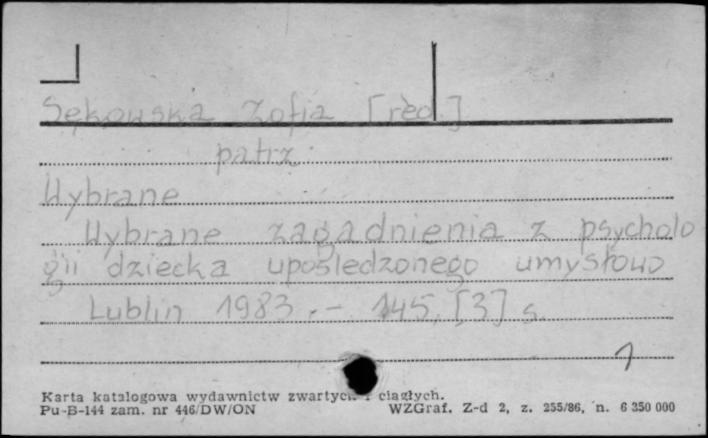 Sękowska Zofia [red.]
patrz
Wybrane
Wybrane zagadnienia z psycholo
gii dziecka upośledzonego umysłowo
Lublin 1983.- 145, [3] s.
1
Karta katalogowa wydawnictw zwartych i ciągłych.
Pu-B-144 zam. nr 446/DW/ON WZGraf. Z-d 2, z. 255/86, n. 6 350 000